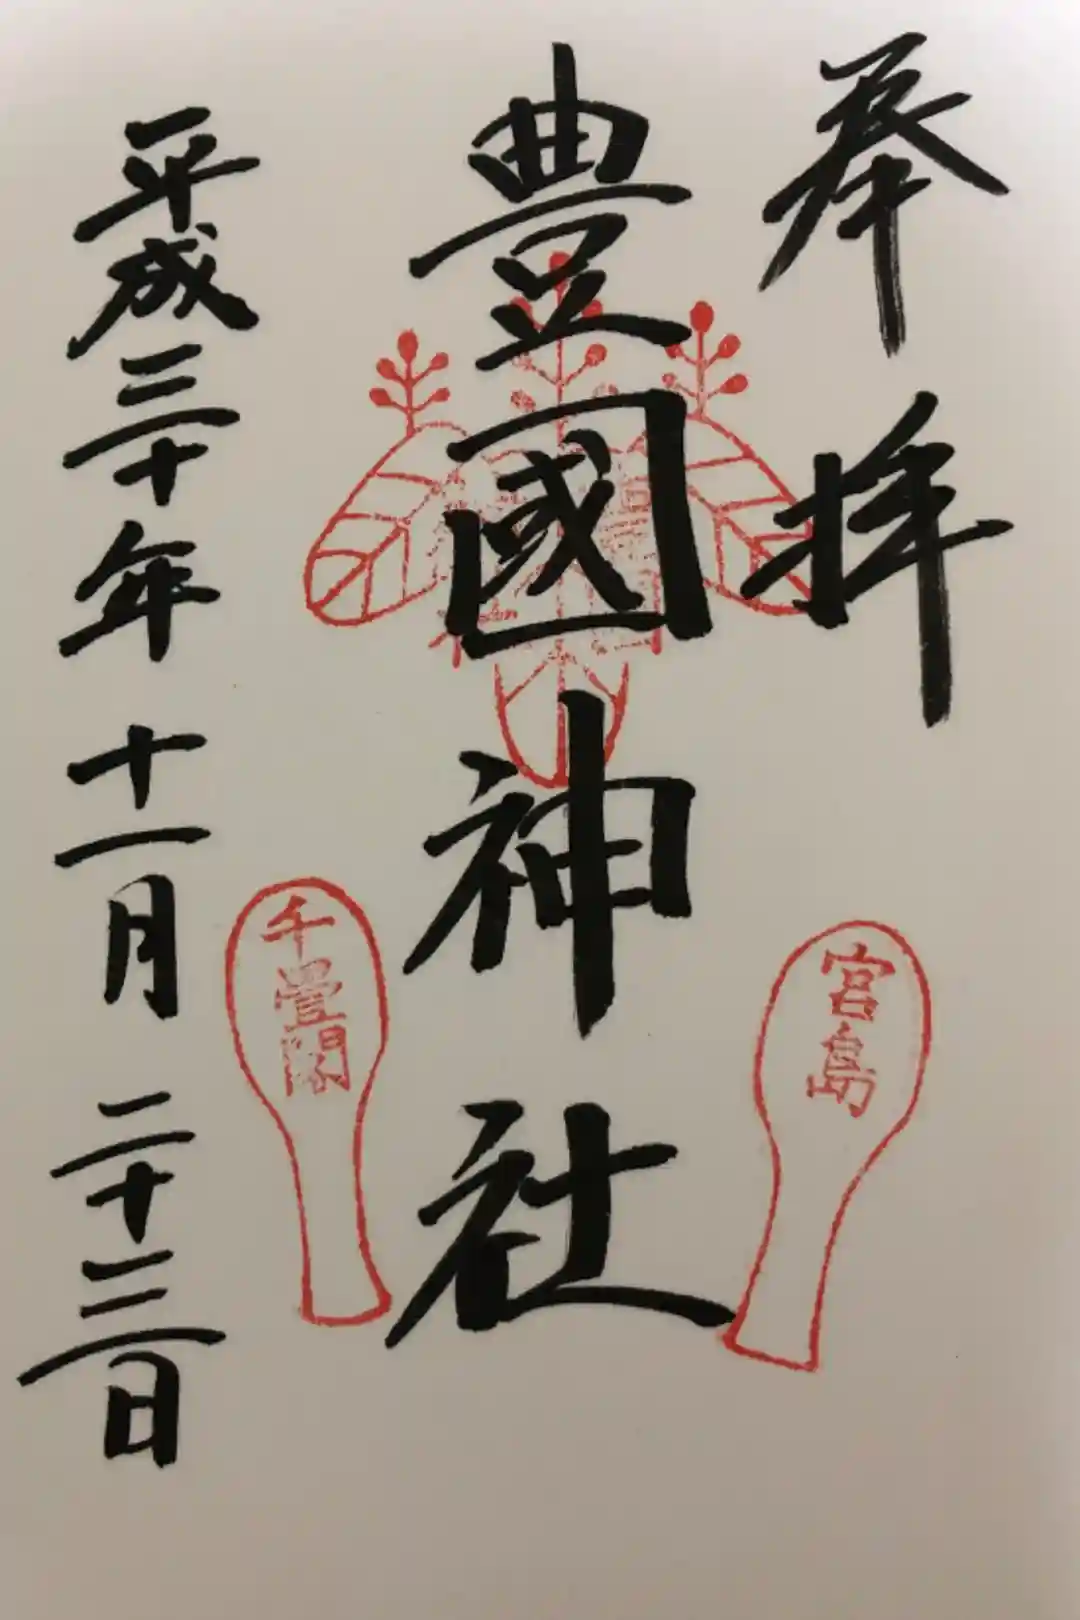 奉拝
宮島
豊國神社
千畳閣
平成三十年十一月二十三日